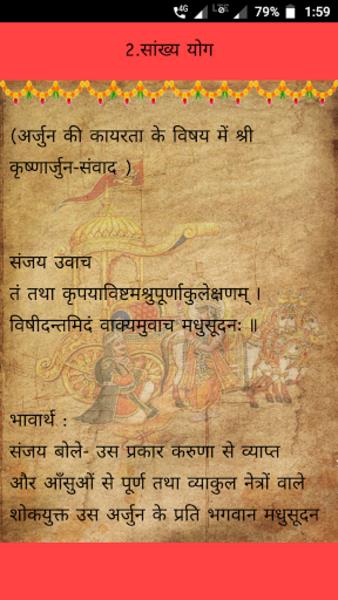 4G LTE 79% 1:59
2.सांख्य योग
(अर्जुन की कायरता के विषय में श्री
कृष्णार्जुन-संवाद )
संजय उवाच
तं तथा कृपयाविष्टमश्रुपूर्णाकुलेक्षणम् ।
विषीदन्तमिदं वाक्यमुवाच मधुसूदनः ॥
भावार्थ :
संजय बोले- उस प्रकार करुणा से व्याप्त
और आँसुओं से पूर्ण तथा व्याकुल नेत्रों वाले
शोकयुक्त उस अर्जुन के प्रति भगवान मधुसूदन